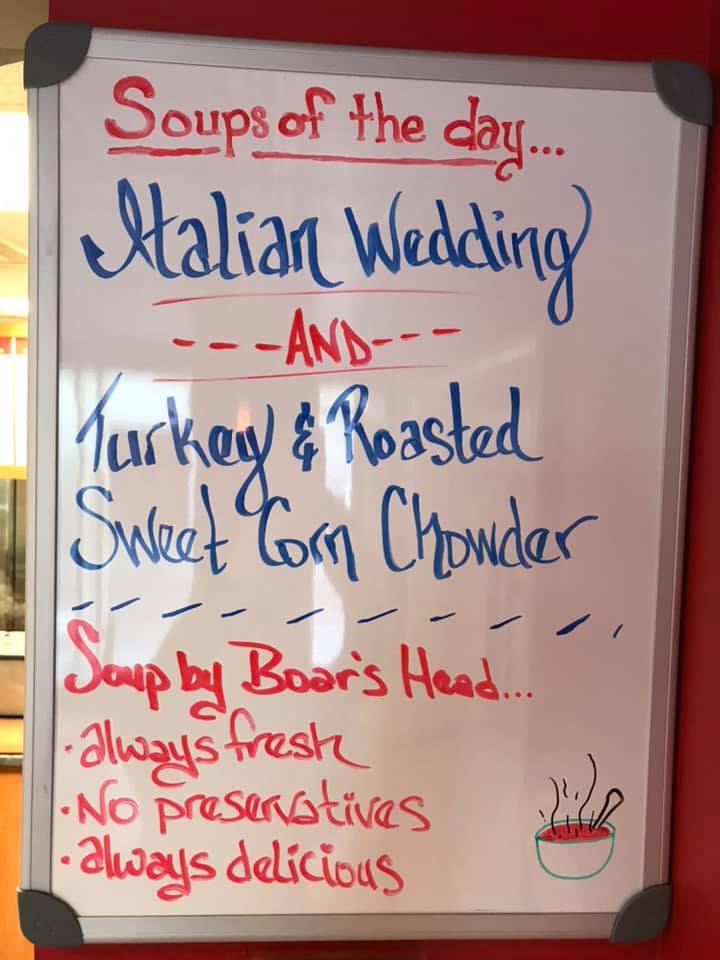 Soups of the day...
Italian Wedding
---AND---
Turkey & Roasted
Sweet Corn Chowder
Soup by Boar's Head...
· always fresh
· No preservatives
· always delicious